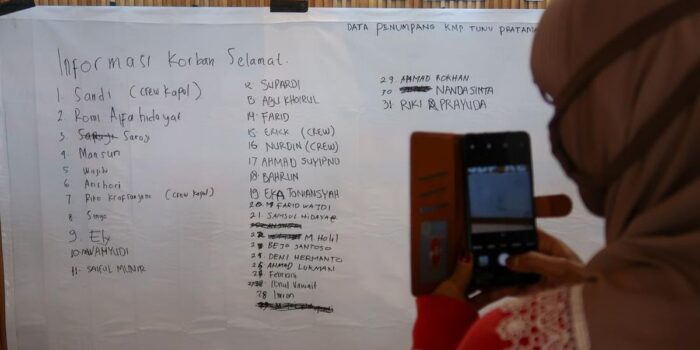 DATA PENUMPANG KMP TUNU PRATAMA
Informasi Korban Selamat.
1. Sandi (crew kapal)
2. Romi Alfa hidayat
3. Saroji
4 Mansun
5 Wajib
6 Anshori
7 Riko (crew kapal)
8
9. Ely
10. WAHYUDI
11. SAIFUL MUNIR
12 SUPARDI
13 ABU KHOIRUL
14 FARID
15 ERICK (CREW)
16 NURDIN (CREW)
17 AHMAD SUYIPNO
18 BAHRUN
19 EKA TONIANSYAH
20 M FARID WAJDI
21 SAMSUL HIDAYAT
22 M Holil
23 BEJO SANTOSO
24 DENI HERMANTO
25 AHMAD LUKMAN
26 Febriani
27 Ibnul Vawait
28 Imron
29. AHMAD ROKHAN
30 NANDA SINTA
31 RIKI PRAYUDA